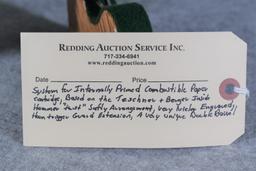 REDDING AUCTION SERVICE INC.
717-334-6941
www.reddingauction.com
Date Price
System for Internally Primed Combustible Paper
cartridge, Based on the Teschner + Benger Inside
Hammer "twist" Safty Arrangement, very richly Engraved,
Horn trigger Guard Extension, A very unique Double Barrel